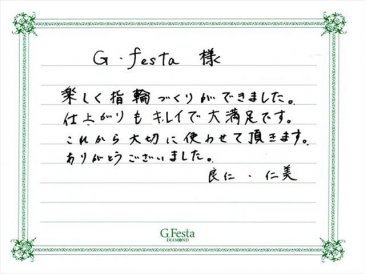 G.festa 様
楽しく指輪づくりができました。
仕上がりもキレイで大満足です。
これから大切に使わせて頂きます。
ありがとうございました。
良仁・仁美
G.Festa
DIAMOND